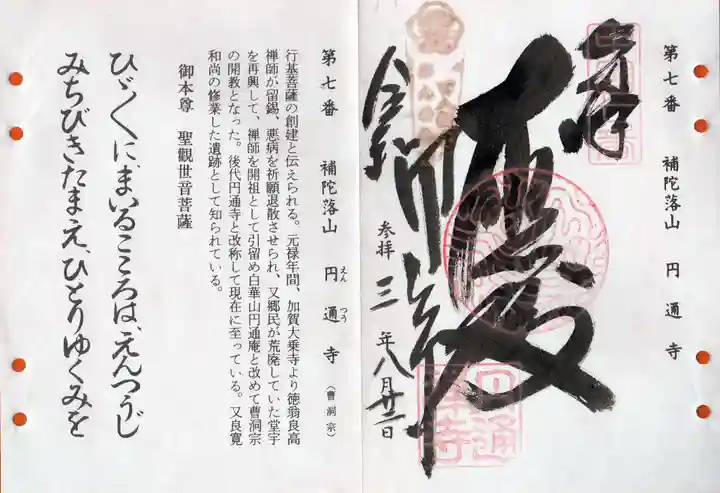 第七番　補陀落山　円通寺
奉拝
大悲殿
円通寺
参拝 三年八月廿一日
円通禅寺
第七番　補陀落山　円通寺（曹洞宗）
えん つう
行基菩薩の創建と伝えられる。元禄年間、加賀大乗寺より徳翁良高
禅師が留錫、悪病を祈願退散させられ、又郷民が荒廃していた堂宇
を再興して、禅師を開祖として引留め白華山円通庵と改めて曹洞宗
の開教となった。後代円通寺と改称して現在に至っている。又良寛
和尚の修業した遺跡として知られている。
御本尊　聖觀世音菩薩
ひゞくに、まいるこころは、えんつうじ
みちびきたまえ、ひとりゆくみを